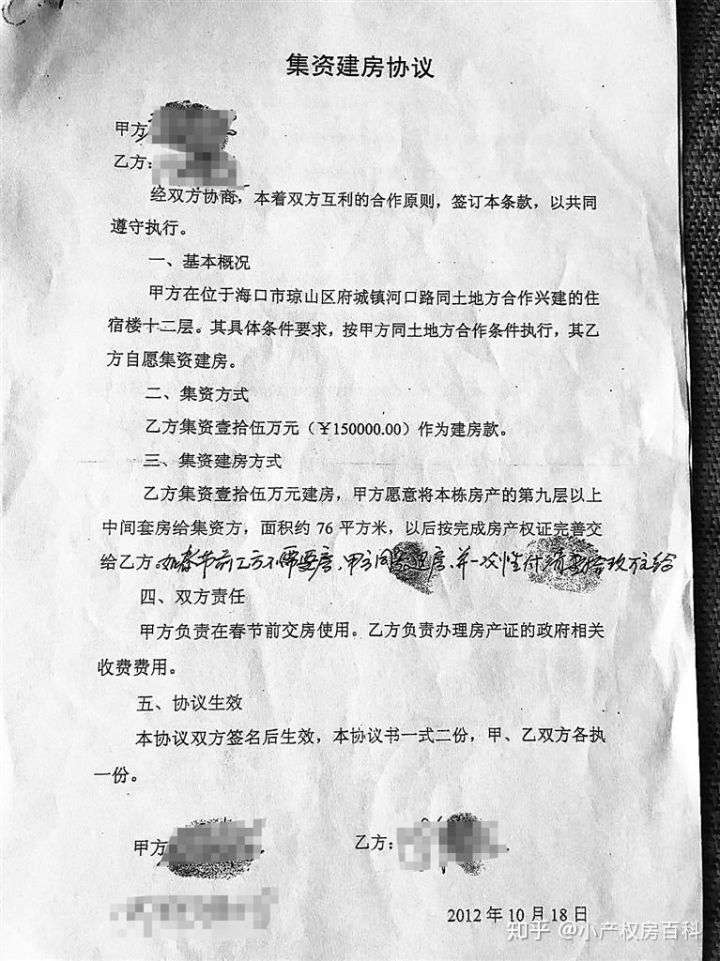 集资建房协议
甲方
乙方：
经双方协商，本着双方互利的合作原则，签订本条款，以共同
遵守执行。
一、基本概况
甲方在位于海口市琼山区府城镇河口路同土地方合作兴建的住
宿楼十二层。其具体条件要求，按甲方同土地方合作条件执行，其乙
方自愿集资建房。
二、集资方式
乙方集资壹拾伍万元（￥150000.00）作为建房款。
三、集资建房方式
乙方集资壹拾伍万元建房，甲方愿意将本栋房产的第九层以上
中间套房给集资方，面积约 76 平方米，以后按完成房产权证完善交
给乙方。如春节前乙方不需要房，甲方同意退房，并一次性付
四、双方责任
甲方负责在春节前交房使用。乙方负责办理房产证的政府相关
收费费用。
五、协议生效
本协议双方签名后生效，本协议书一式二份，甲、乙双方各执
一份。
甲方
乙方：
2012 年 10 月 18 日
知乎 @小产权房百科